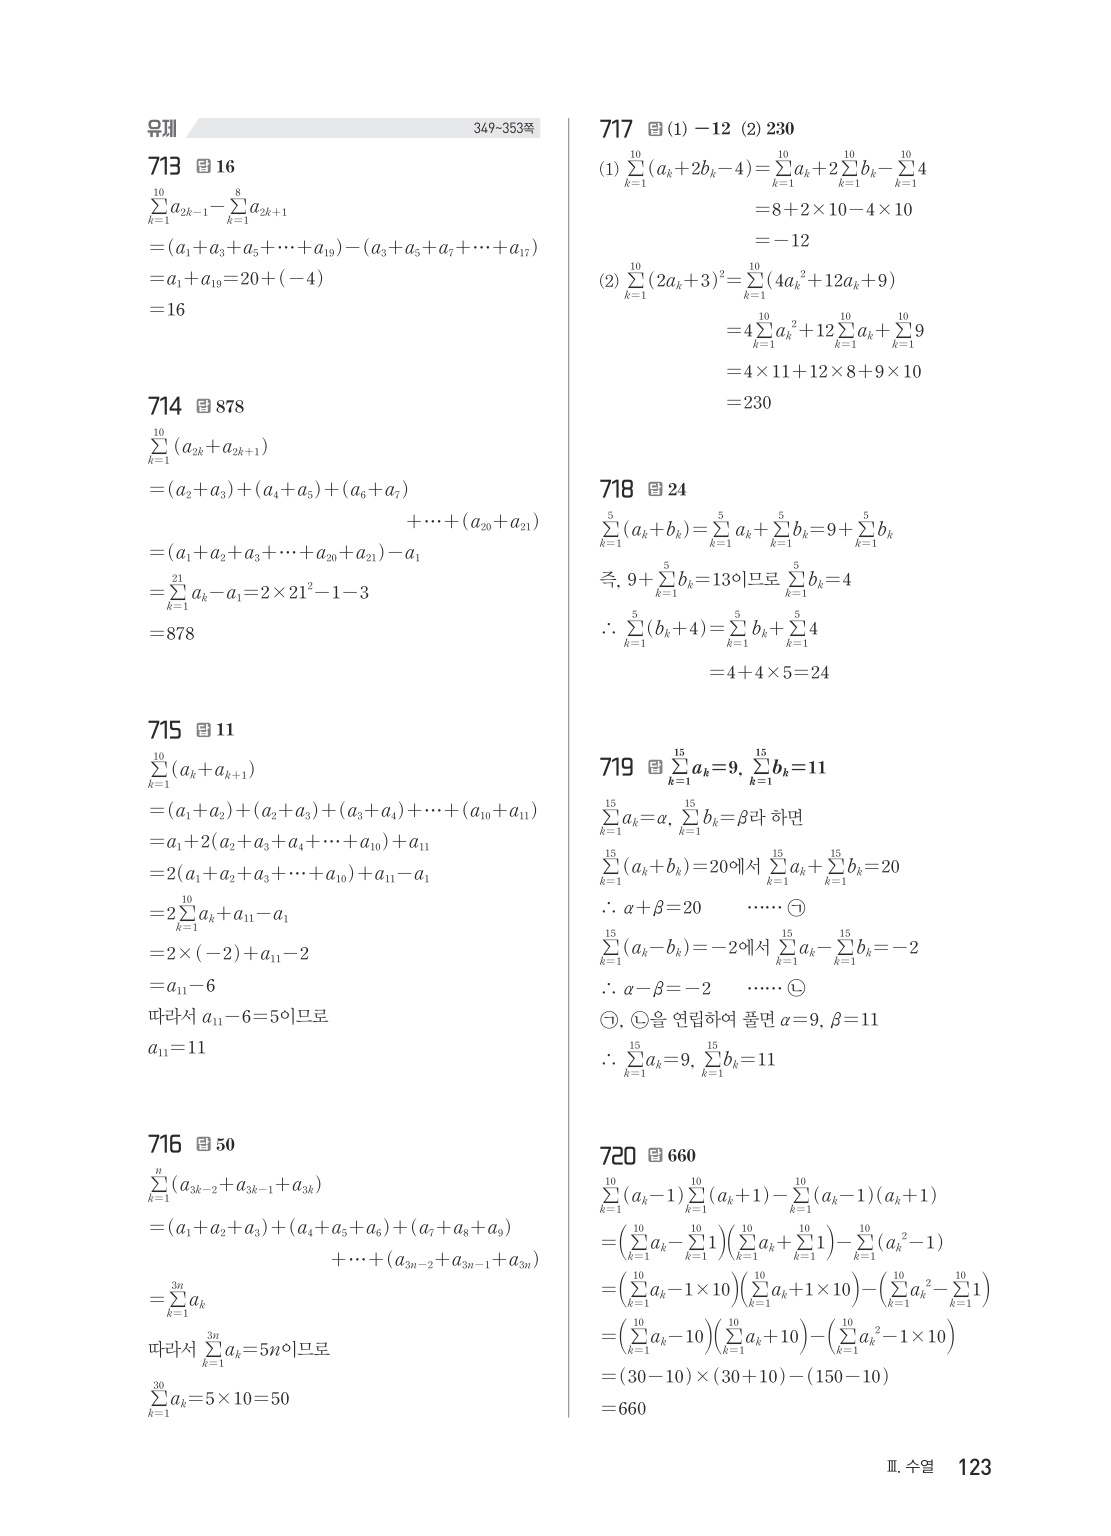 유제 349~353쪽
713 답 16
$\sum_{k=1}^{10} a_{2k-1} - \sum_{k=1}^{8} a_{2k+1}$
$=(a_1+a_3+a_5+\cdots+a_{19})-(a_3+a_5+a_7+\cdots+a_{17})$
$=a_1+a_{19}=20+(-4)$
$=16$
714 답 878
$\sum_{k=1}^{10} (a_{2k}+a_{2k+1})$
$=(a_2+a_3)+(a_4+a_5)+(a_6+a_7)$
$+\cdots+(a_{20}+a_{21})$
$=(a_1+a_2+a_3+\cdots+a_{20}+a_{21})-a_1$
$=\sum_{k=1}^{21} a_k-a_1=2\times21^2-1-3$
$=878$
715 답 11
$\sum_{k=1}^{10} (a_k+a_{k+1})$
$=(a_1+a_2)+(a_2+a_3)+(a_3+a_4)+\cdots+(a_{10}+a_{11})$
$=a_1+2(a_2+a_3+a_4+\cdots+a_{10})+a_{11}$
$=2(a_1+a_2+a_3+\cdots+a_{10})+a_{11}-a_1$
$=2\sum_{k=1}^{10} a_k+a_{11}-a_1$
$=2\times(-2)+a_{11}-2$
$=a_{11}-6$
따라서 $a_{11}-6=5$이므로
$a_{11}=11$
716 답 50
$\sum_{k=1}^{n} (a_{3k-2}+a_{3k-1}+a_{3k})$
$=(a_1+a_2+a_3)+(a_4+a_5+a_6)+(a_7+a_8+a_9)$
$+\cdots+(a_{3n-2}+a_{3n-1}+a_{3n})$
$=\sum_{k=1}^{3n} a_k$
따라서 $\sum_{k=1}^{3n} a_k=5n$이므로
$\sum_{k=1}^{30} a_k=5\times10=50$
717 답 (1) −12 (2) 230
(1) $\sum_{k=1}^{10} (a_k+2b_k-4)=\sum_{k=1}^{10} a_k+2\sum_{k=1}^{10} b_k-\sum_{k=1}^{10} 4$
$=8+2\times10-4\times10$
$=-12$
(2) $\sum_{k=1}^{10} (2a_k+3)^2=\sum_{k=1}^{10} (4a_k^2+12a_k+9)$
$=4\sum_{k=1}^{10} a_k^2+12\sum_{k=1}^{10} a_k+\sum_{k=1}^{10} 9$
$=4\times11+12\times8+9\times10$
$=230$
718 답 24
$\sum_{k=1}^{5} (a_k+b_k)=\sum_{k=1}^{5} a_k+\sum_{k=1}^{5} b_k=9+\sum_{k=1}^{5} b_k$
즉, $9+\sum_{k=1}^{5} b_k=13$이므로 $\sum_{k=1}^{5} b_k=4$
∴ $\sum_{k=1}^{5} (b_k+4)=\sum_{k=1}^{5} b_k+\sum_{k=1}^{5} 4$
$=4+4\times5=24$
719 답 $\sum_{k=1}^{15} a_k=9$, $\sum_{k=1}^{15} b_k=11$
$\sum_{k=1}^{15} a_k=\alpha$, $\sum_{k=1}^{15} b_k=\beta$라 하면
$\sum_{k=1}^{15} (a_k+b_k)=20$에서 $\sum_{k=1}^{15} a_k+\sum_{k=1}^{15} b_k=20$
∴ $\alpha+\beta=20$ …… ㉠
$\sum_{k=1}^{15} (a_k-b_k)=-2$에서 $\sum_{k=1}^{15} a_k-\sum_{k=1}^{15} b_k=-2$
∴ $\alpha-\beta=-2$ …… ㉡
㉠, ㉡을 연립하여 풀면 $\alpha=9$, $\beta=11$
∴ $\sum_{k=1}^{15} a_k=9$, $\sum_{k=1}^{15} b_k=11$
720 답 660
$\sum_{k=1}^{10} (a_k-1)\sum_{k=1}^{10} (a_k+1)-\sum_{k=1}^{10} (a_k-1)(a_k+1)$
$=\left(\sum_{k=1}^{10} a_k-\sum_{k=1}^{10} 1\right)\left(\sum_{k=1}^{10} a_k+\sum_{k=1}^{10} 1\right)-\sum_{k=1}^{10} (a_k^2-1)$
$=\left(\sum_{k=1}^{10} a_k-1\times10\right)\left(\sum_{k=1}^{10} a_k+1\times10\right)-\left(\sum_{k=1}^{10} a_k^2-\sum_{k=1}^{10} 1\right)$
$=\left(\sum_{k=1}^{10} a_k-10\right)\left(\sum_{k=1}^{10} a_k+10\right)-\left(\sum_{k=1}^{10} a_k^2-1\times10\right)$
$=(30-10)\times(30+10)-(150-10)$
$=660$
Ⅲ. 수열 123